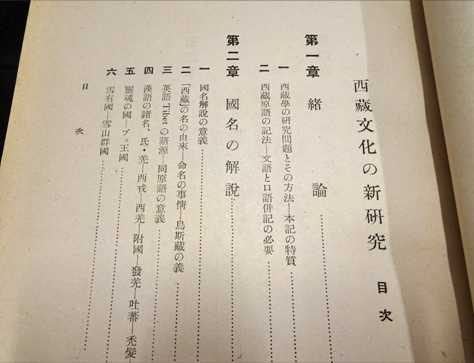 西藏文化の新研究　目次
第一章　緒　論
一　西藏學の研究問題とその方法—本記の特質
二　西藏原語の記法—文語と口語併記の必要
第二章　國名の解說
一　國名解說の意義
二　「西藏」の名の由來—命名の事情—烏斯藏の義
三　英語 Tibet の語源—同原語の意義
四　漢語の諸名、氐・羌—西戎—西羌—附國—發羌—吐蕃—禿髮
五　靈魂の國—プェ王國
六　雪有國　雪山群國
目　次